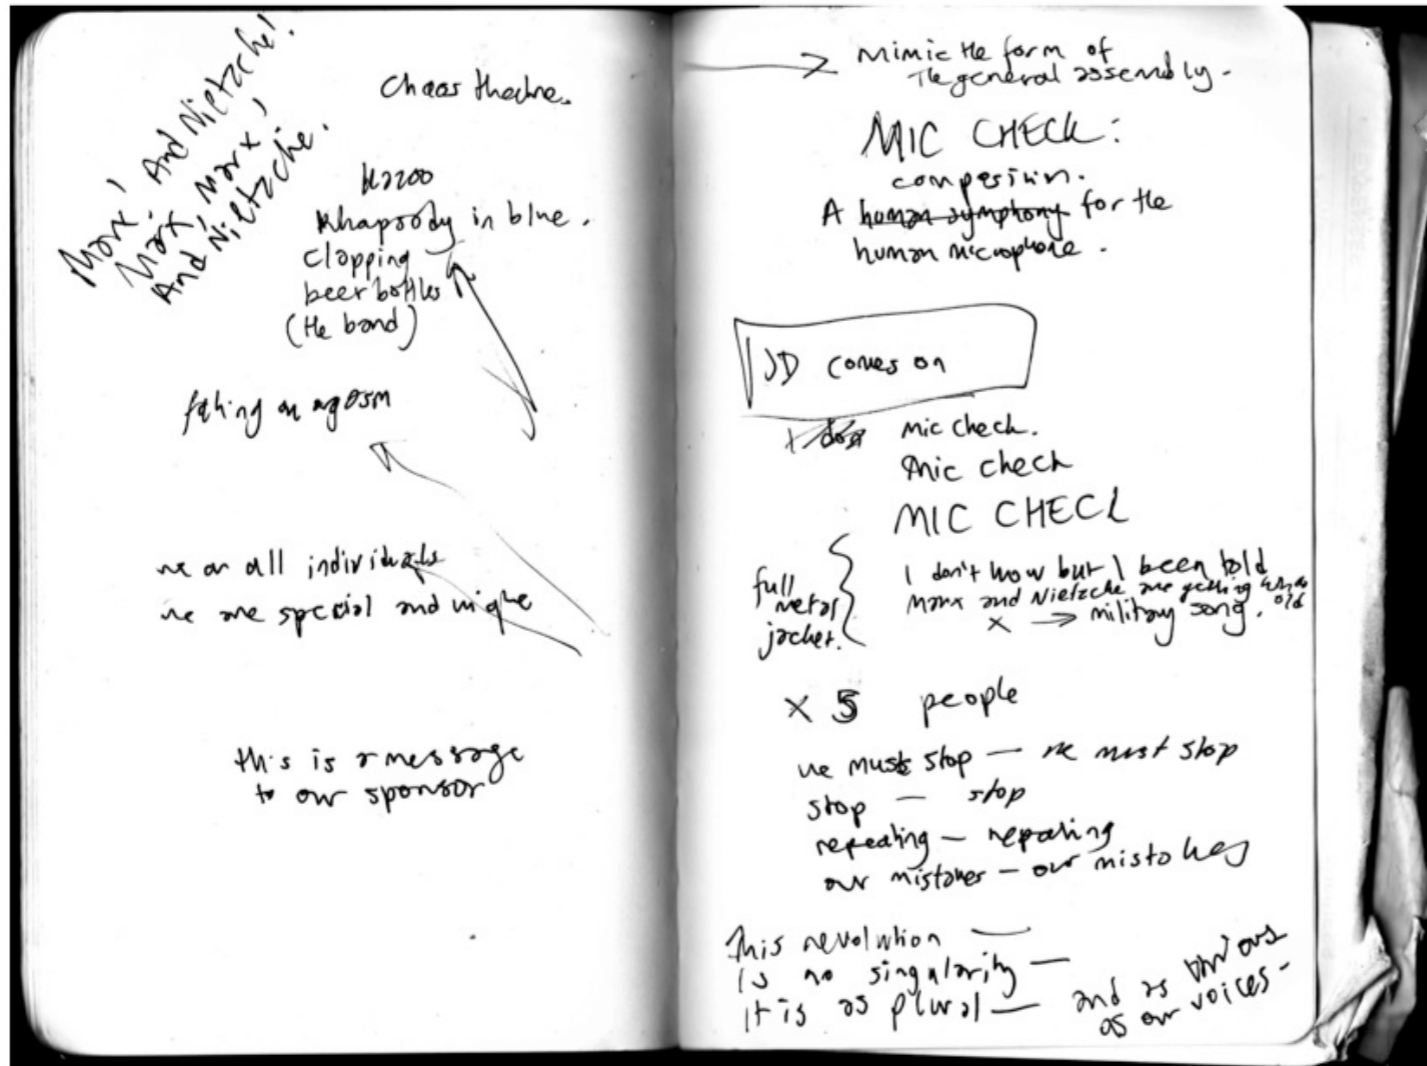 Marx, And Nietzche!
Marx, Marx,
And Nietzche.
Chaos theatre.
Kazoo
Rhapsody in blue.
clapping
beer bottles
(the band)
faking an orgasm
we are all individuals
we are special and unique
this is a message
to our sponsor
Mimic the form of
the general assembly.
MIC CHECK:
composition.
A human symphony for the
human microphone.
JD comes on
mic check.
Mic check
MIC CHECK
full
metal
jacket.
I don't know but I been told
Marx and Nietzche are getting
old
X → military song.
X 5 people
we must stop — we must stop
stop — stop
repeating — repeating
our mistakes — our mistakes
This revolution —
Is no singularity —
It is as plural — and as various
as our voices -